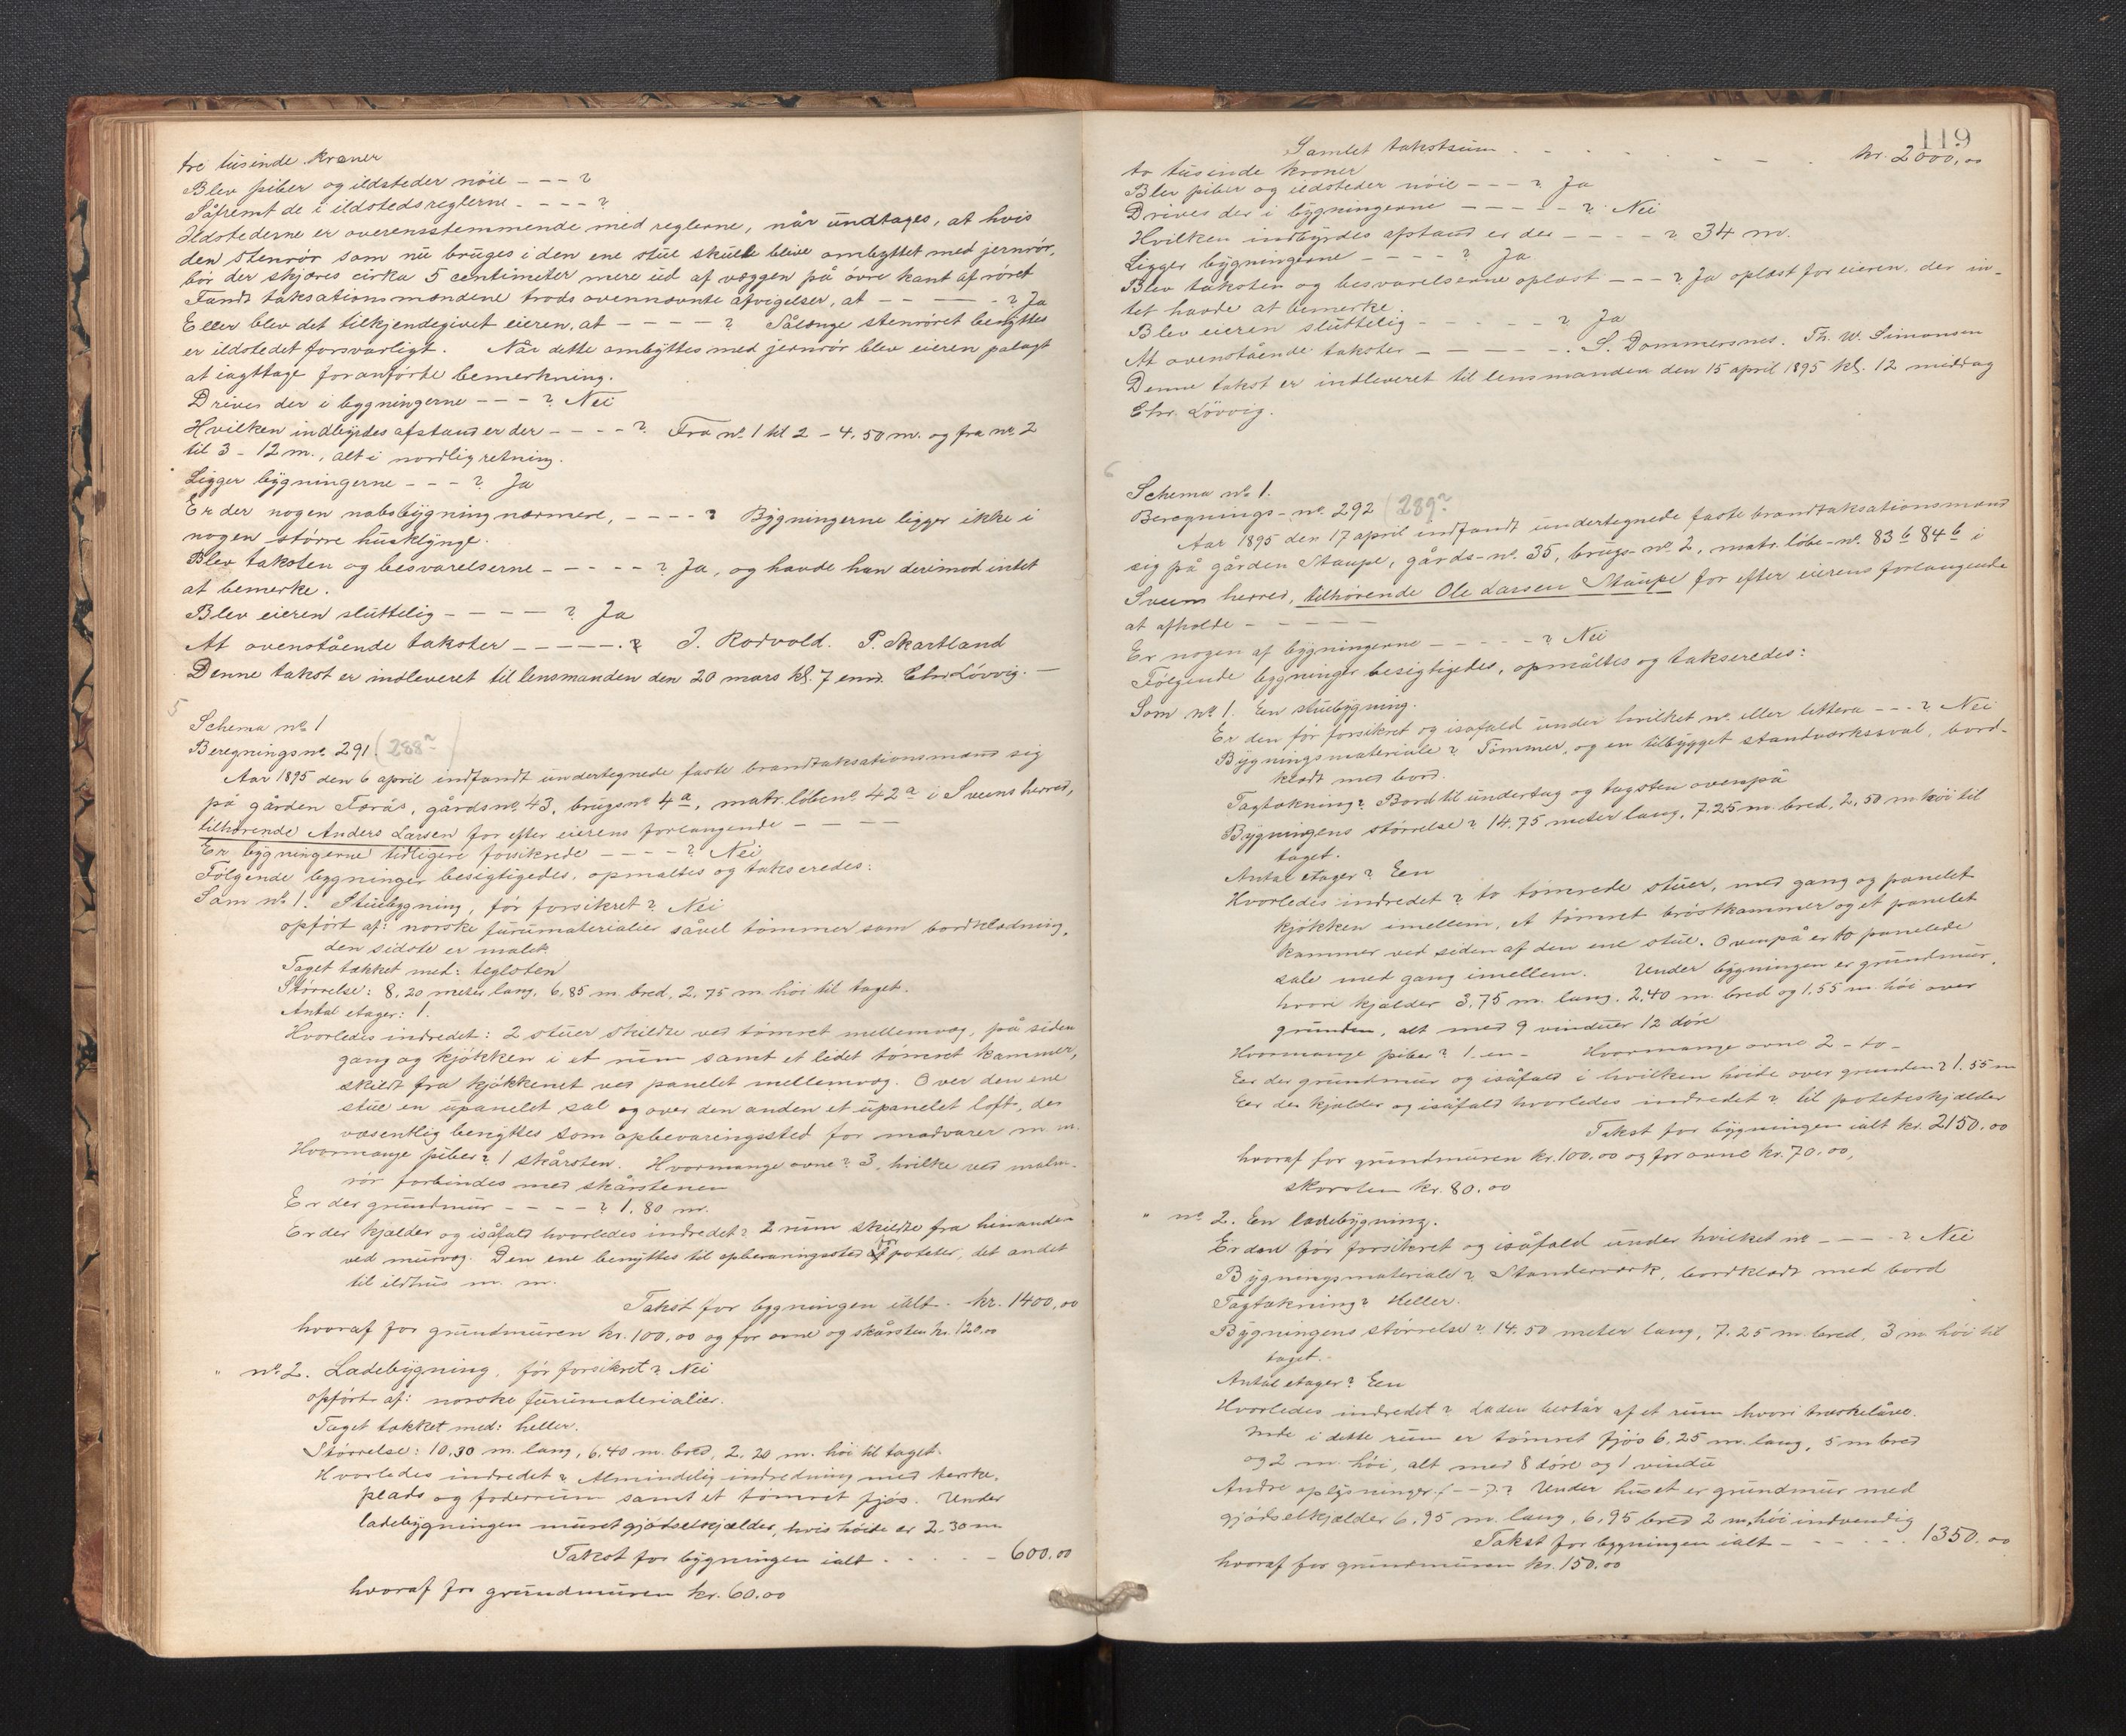 tre tusinde kroner
Blev piber og ildsteder nöie - - - ?
Såfremt de i ildstedsreglerne - - - - ?
Ildstederne er overensstemmende med reglerne, når undtages, at hvis
den stenrör som nu bruges i den ene stue skulle blive ombyttet med jernrör,
bör der skjæres cirka 5 centimeter mere ud af væggen på övre kant af röret
Fandt taksationsmændene trods ovennævnte afvigelser, at - - - - - ? Ja
Eller blev det tilkjendegivet eieren, at - - - - ? Sålænge stenröret benyttes
er ildstedet forsvarligt. Når dette ombyttes med jernrör blev eieren pålagt
at iagttage foranförte bemerkning.
Drives der i bygningerne - - - ? Nei
Hvilken indbyrdes afstand er der - - - - ? Fra no. 1 til 2 - 4,50 m. og fra no. 2
til 3 - 12 m., alt i nordlig retning.
Ligger bygningerne - - - ? Ja
Er der nogen nabobygning nærmere, - - - - ? Bygningerne ligger ikke i
nogen större husklynge.
Blev taksten og besvarelserne - - - - - ? Ja, og havde han derimod intet
at bemerke.
Blev eieren sluttelig - - - - ? Ja
At ovenstående takster - - - - - . ? J. Rodvold. P. Skartland
Denne takst er indleveret til lensmanden den 20 mars kl. 7 emd. Chr. Lövvig. -
5
Schema no. 1
Beregnings no. 291 (288?)
Aar 1895 den 6 april indfandt undertegnede faste brandtaksationsmænd sig
på gården Færås, gårds no. 43, brugs no. 4a, matr. löbe no. 42a i Sveens herred,
tilhörende Anders Larsen for efter eierens forlangende - - - -
Er bygningerne tidligere forsikrede - - - - ? Nei
Fölgende bygninger besigtigedes, opmåltes og takseredes:
Som no. 1. Stuebygning, för forsikret? Nei
opfört af: norske furumaterialier såvel tömmer som bordklædning,
den sidste er malet.
Taget tækket med: teglsten
Störrelse: 8,20 meter lang, 6,85 m. bred, 2,75 m. höi til taget.
Antal etager: 1.
Hvorledes indredet: 2 stuer skildte ved tömret mellemvæg, på siden
gang og kjökken i et rum samt et lidet tömret kammer,
skildt fra kjökkenet ved panelet mellemvæg. Over den ene
stue en upanelet sal og over den anden et upanelet loft, der
væsentlig benyttes som opbevaringssted for madvarer m. m.
Hvormange piber? 1 skårsten. Hvormange ovne? 3, hvilke ved malm-
rör forbindes med skårstenen
Er der grundmur - - - - ? 1,80 m.
Er der kjælder og isåfald hvorledes indredet? 2 rum skildte fra hinanden
ved murvæg. Den ene benyttes til opbevaringssted for poteter, det andet
til ildhus m. m.
Takst for bygningen ialt - kr. 1400,00
hvoraf for grundmuren kr. 100,00 og for ovne og skårsten kr. 120,00
" no. 2. Ladebygning, för forsikret? Nei
opfört af: norske furumaterialier.
Taget tækket med: heller.
Störrelse: 10,30 m. lang, 6,40 m. bred, 2,20 m. höi til taget.
Hvorledes indredet? Almindelig indredning med tærske-
plads og foderrum samt et tömret fjös. Under
ladebygningen muret gjödselkjælder, hvis höide er 2,30 m
Takst for bygningen ialt - - - - - 600,00
hvoraf for grundmuren kr. 60,00
119
Samlet takstsum - - - - - - - - kr. 2000,00
to tusinde kroner
Blev piber og ildsteder nöie - - - ? Ja
Drives der i bygningerne - - - - - ? Nei
Hvilken indbyrdes afstand er der - - - - ? 34 m.
Ligger bygningerne - - - - ? Ja
Blev taksten og besvarelserne oplæst - - - ? Ja oplæst for eieren, der in-
tet havde at bemerke.
Blev eieren sluttelig - - - - - ? Ja
At ovenstående takster - - - - - - . S. Dommersnes. Th. W. Simonsen
Denne takst er indleveret til lensmanden den 15 april 1895 kl. 12 middag
Chr. Lövvig.
6
Schema no. 1.
Beregnings - no. 292 (289?)
Aar 1895 den 17 april indfandt undertegnede faste brandtaksationsmænd
sig på gården Staupe, gårds - no. 35, brugs - no. 2, matr. löbe - no. 83b 84b i
Sveens herred, tilhörende Ole Larsen Staupe for efter eierens forlangende
at afholde - - - - -
Er nogen af bygningerne - - - - - ? Nei
Fölgende bygninger besigtigedes, opmåltes og takseredes:
Som no. 1. En stuebygning.
Er den för forsikret og isåfald under hvilket no. eller littera - - - ? Nei
Bygningsmateriale? Tömmer, og en tilbygget standværkssval, bord-
klædt med bord.
Tagtækning? Bord til undertag og tagsten ovenpå
Bygningens störrelse? 14,75 meter lang, 7,25 m. bred, 2,50 m. höi til
taget.
Antal etager? Een
Hvorledes indredet? to tömrede stuer, med gang og panelet
kjökken imellem, et tömret bröstkammer og et panelet
kammer ved siden af den ene stue. Ovenpå er to panelede
sale med gang imellem. Under bygningen er grundmur,
hvori kjælder 3,75 m. lang, 2,40 m. bred og 1,55 m. höi over
grunden, alt med 9 vinduer 12 döre
Hvormange piber? 1 - en - Hvormange ovne 2 - to -
Eer der grundmur og isåfald i hvilken höide over grunden? 1.55 m
Eer der kjælder og isåfald hvorledes indredet? til poteteskjælder
Takst for bygningen ialt kr. 2150.00
hvoraf for grundmuren kr. 100.00 og for ovne kr. 70.00,
skorsten kr. 80.00
" no. 2. En ladebygning.
Er den för forsikret og isåfald under hvilket no - - - - ? Nei
Bygningsmateriale? Standerværk, bordklædt med bord
Tagtækning? Heller.
Bygningens störrelse? 14.50 meter lang, 7.25 m. bred, 3 m. höi til
taget.
Antal etager? Een
Hvorledes indredet? Laden består af et rum hvori træskelåve.
Inde i dette rum er tömret fjös 6.25 m. lang, 5 m bred
og 2 m. höi, alt med 8 döre og 1 vindu
Andre oplysninger (- - -)? Under huset er grundmur med
gjödselkjælder 6,95 m. lang, 6,95 bred 2 m. höi indvendig
Takst for bygningen ialt - - - - - 1350.00
hvoraf for grundmuren kr. 150.00